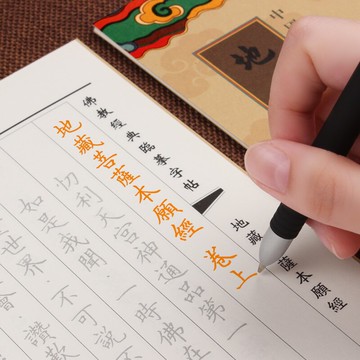 中
地
地藏薩本願經
佛教經典臨摹字帖
地藏菩薩本願經 卷上
忉利天宮神通品第一
如是我聞．一時佛在
世界．不可說
會．讚歎